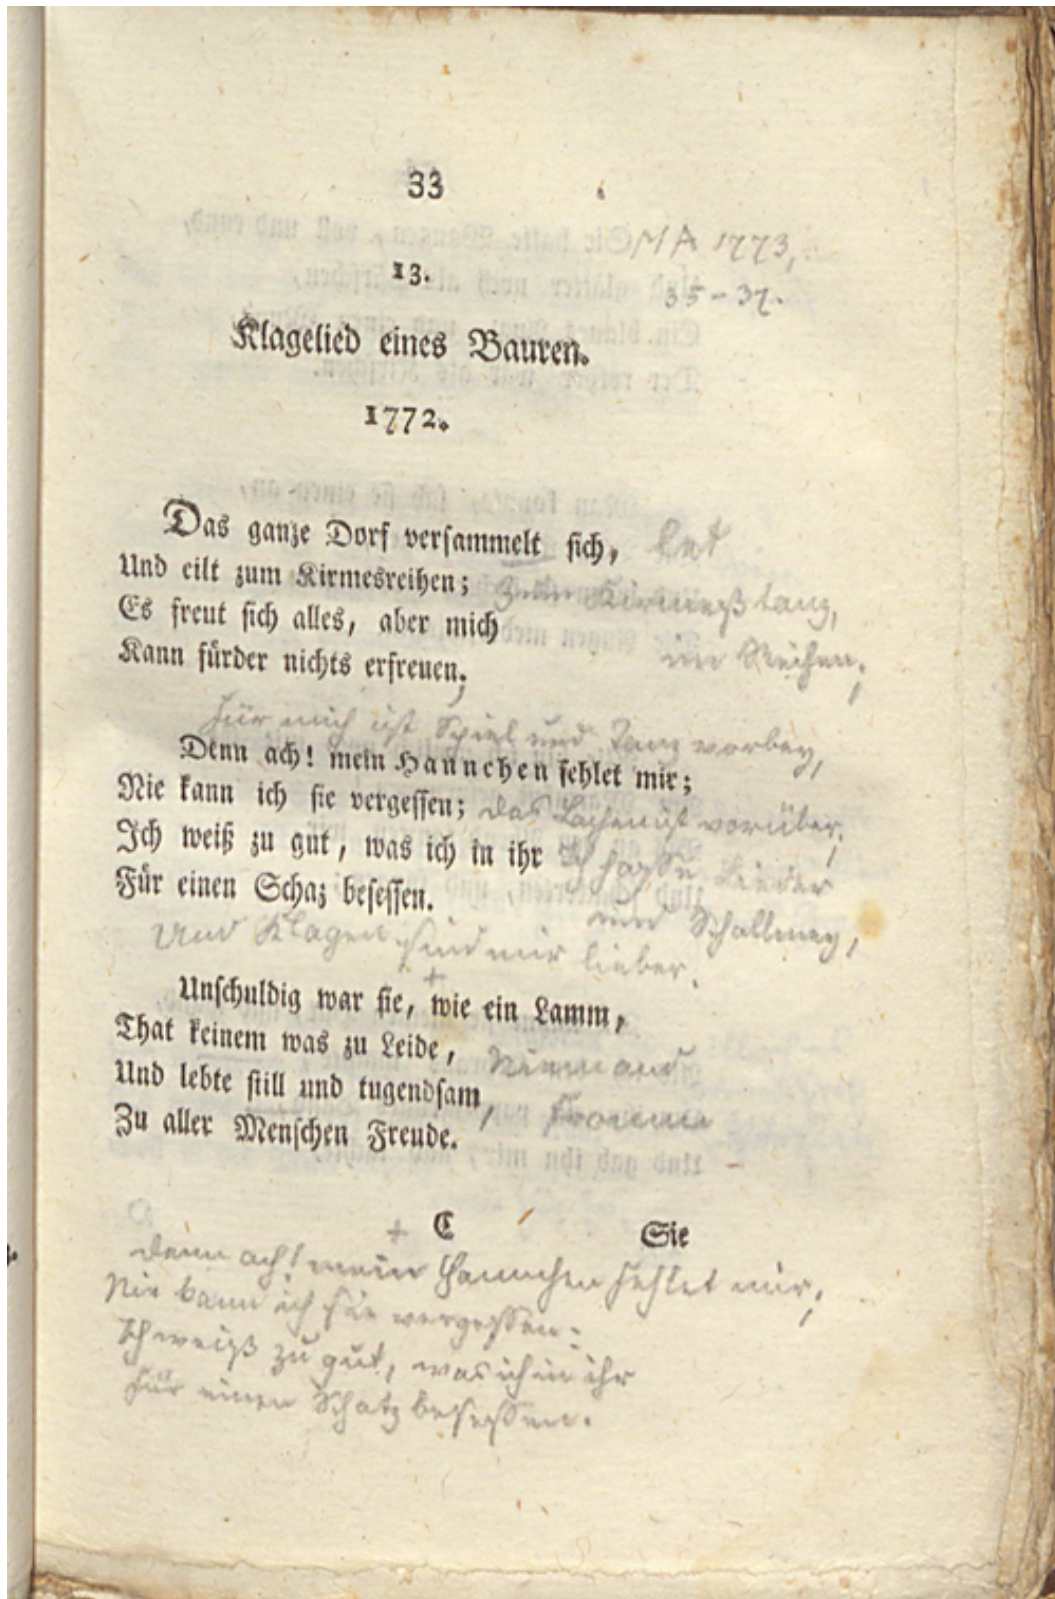 33
MA 1773,
13.
35-37.
Klagelied eines Bauren.
1772.
Das ganze Dorf versammelt sich,
Und eilt zum Kirmesreihen; Zum Kirmeßtanz,
Es freut sich alles, aber mich
im Reihen;
Kann fürder nichts erfreuen;
Für mich ist Spiel und Tanz vorbey,
Denn ach! mein Hannchen fehlet mir;
Nie kann ich sie vergessen; das Lachen ist vorüber;
Ich weiß zu gut, was ich in ihr Ich hasse Lieder
Für einen Schaz besessen.
und Schallmey,
Und Klagen sind mir lieber.
+
Unschuldig war sie, wie ein Lamm,
That keinem was zu Leide, Niemand
Und lebte still und tugendsam, fromm
Zu aller Menschen Freude.
+ C Sie
Denn ach! mein Hannchen fehlet mir;
Nie kann ich sie vergessen.
Ich weiß zu gut, was ich in ihr
Für einen Schatz besessen.